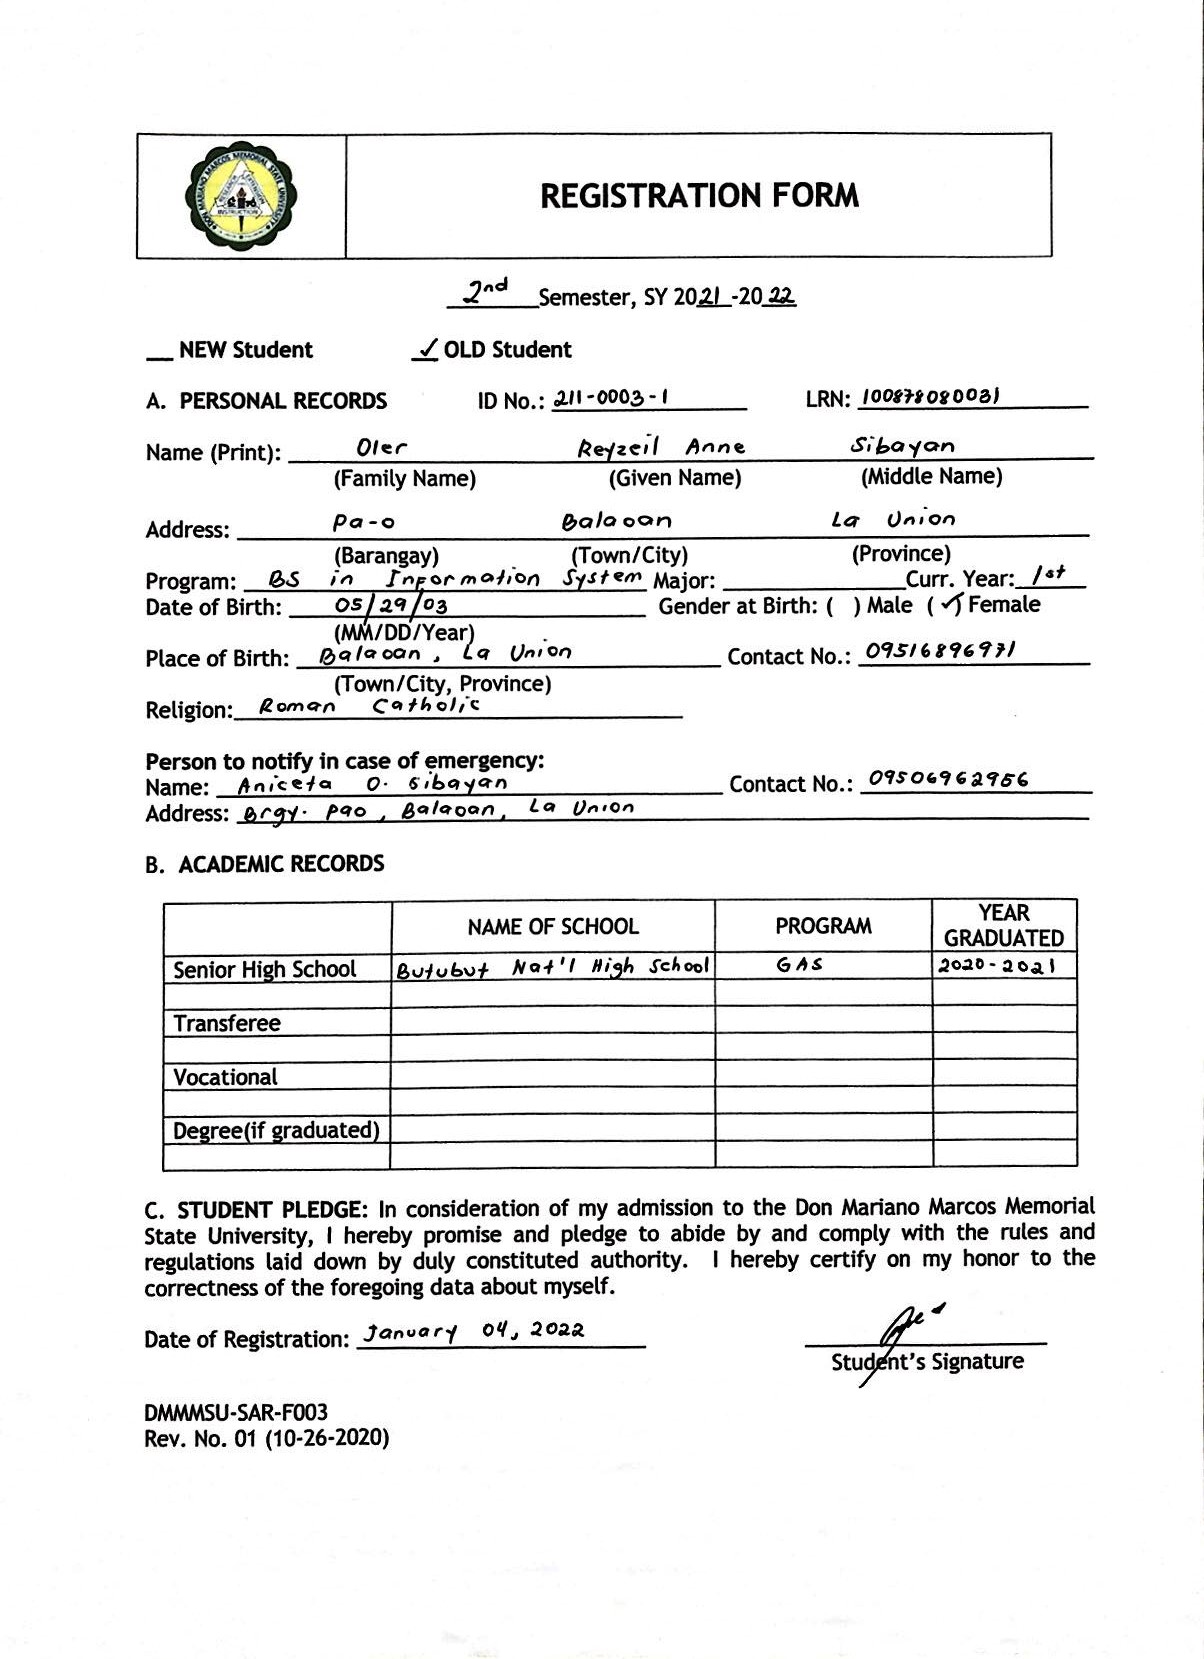 DON MARIANO MARCOS MEMORIAL STATE UNIVERSITY
RESEARCH EXTENSION
INSTRUCTION
REGISTRATION FORM
2nd Semester, SY 2021-2022
__ NEW Student ✓ OLD Student
A. PERSONAL RECORDS ID No.: 211-0003-1 LRN: 100878080031
Name (Print): Oler Reyzeil Anne Sibayan
(Family Name) (Given Name) (Middle Name)
Address: Pa-o Balaoan La Union
(Barangay) (Town/City) (Province)
Program: BS in Information System Major: ____ Curr. Year: 1st
Date of Birth: 05/29/03 Gender at Birth: ( ) Male (✓) Female
(MM/DD/Year)
Place of Birth: Balaoan, La Union Contact No.: 09516896971
(Town/City, Province)
Religion: Roman Catholic
Person to notify in case of emergency:
Name: Aniceta O. Sibayan Contact No.: 09506962956
Address: Brgy. Pao, Balaoan, La Union
B. ACADEMIC RECORDS
NAME OF SCHOOL PROGRAM YEAR GRADUATED
Senior High School Butubut Nat'l High School GAS 2020-2021
Transferee
Vocational
Degree(if graduated)
C. STUDENT PLEDGE: In consideration of my admission to the Don Mariano Marcos Memorial
State University, I hereby promise and pledge to abide by and comply with the rules and
regulations laid down by duly constituted authority. I hereby certify on my honor to the
correctness of the foregoing data about myself.
Date of Registration: January 04, 2022
Student's Signature
DMMMSU-SAR-F003
Rev. No. 01 (10-26-2020)